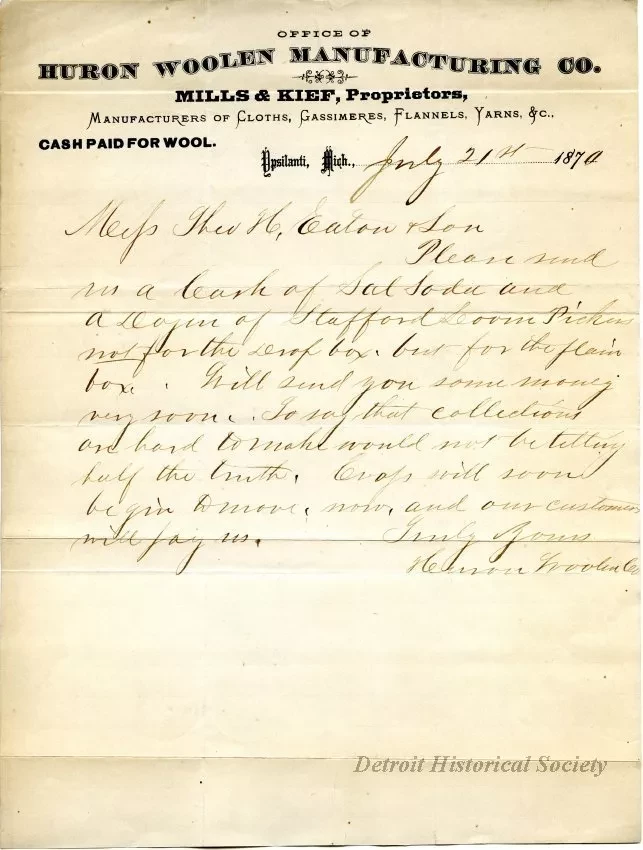 OFFICE OF
HURON WOOLEN MANUFACTURING CO.
MILLS & KIEF, Proprietors,
MANUFACTURERS OF CLOTHS, CASSIMERES, FLANNELS, YARNS, &C.,
CASH PAID FOR WOOL.
Ypsilanti, Mich., July 21st 1870
Mess Theo H, Eaton & Son
Please send
us a Cask of Sal Soda and
a Dozen of Stafford Loom Pickers
not for the Drop box. but for the plain
box. Will send you some money
very soon. To say that collections
are hard to make would not be telling
half the truth. Crops will soon
begin to move, now, and our customers
will pay us. Truly Yours
Huron Woolen Co
Detroit Historical Society